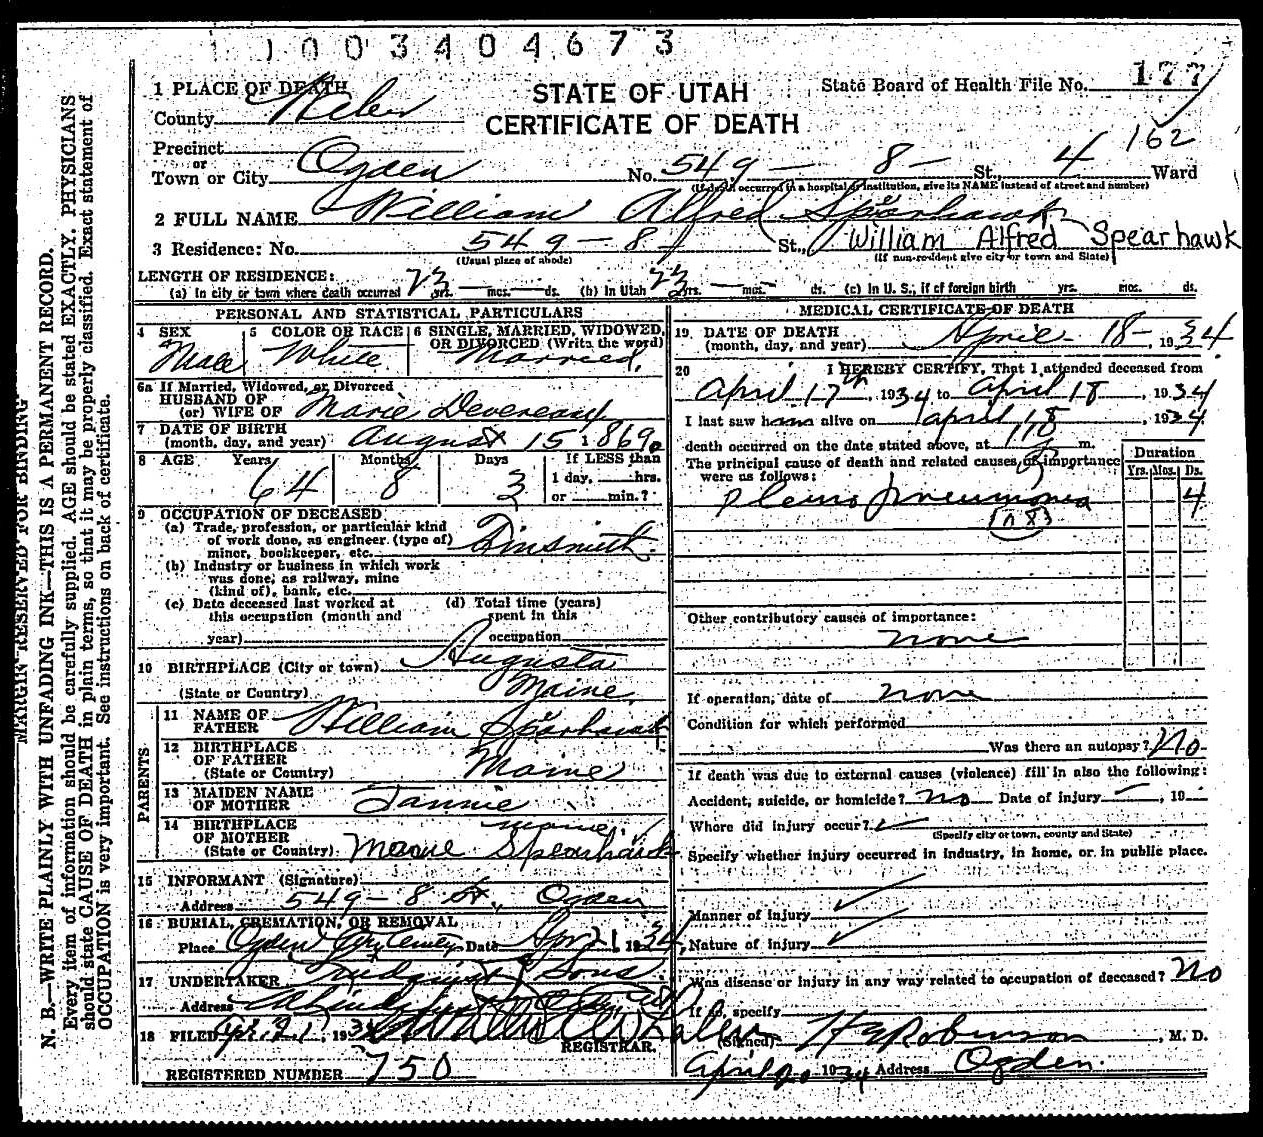 1003404673
1 PLACE OF DEATH
STATE OF UTAH
State Board of Health File No. 177
County Weber
CERTIFICATE OF DEATH
162
Precinct
or
Town or City Ogden No. 549 - 8 - St., 4 Ward
(If death occurred in a hospital or institution, give its NAME instead of street and number)
2 FULL NAME William Alfred Sparhawk
3 Residence: No. 549 - 8 St., William Alfred Spearhawk
(Usual place of abode) (If non-resident give city or town and State)
LENGTH OF RESIDENCE:
(a) In city or town where death occurred 23 yrs. — mos. — ds. (b) In Utah 23 yrs. — mos. — ds. (c) In U. S., if of foreign birth yrs. mos. ds.
PERSONAL AND STATISTICAL PARTICULARS
4 SEX Male
5 COLOR OR RACE White
6 SINGLE, MARRIED, WIDOWED, OR DIVORCED (Write the word) Married.
6a If Married, Widowed, or Divorced
HUSBAND OF
(or) WIFE OF Marie Devereaux
7 DATE OF BIRTH
(month, day, and year) August 15 1869
8 AGE Years Months Days If LESS than
64 8 3 1 day, hrs.
or min.?
9 OCCUPATION OF DECEASED
(a) Trade, profession, or particular kind
of work done, as engineer (type of)
miner, bookkeeper, etc. Tinsmith.
(b) Industry or business in which work
was done; as railway, mine
(kind of), bank, etc.
(c) Date deceased last worked at
this occupation (month and
year)
(d) Total time (years)
spent in this
occupation
10 BIRTHPLACE (City or town) Augusta
(State or Country) Maine.
PARENTS
11 NAME OF
FATHER William Sparhawk
12 BIRTHPLACE
OF FATHER
(State or Country) Maine
13 MAIDEN NAME
OF MOTHER Fannie
14 BIRTHPLACE
OF MOTHER Maine.
(State or Country) Spearhawk
15 INFORMANT (Signature)
Address 549 - 8 St., Ogden
16 BURIAL, CREMATION, OR REMOVAL
Place Ogden City Cemetery Date Apr 21 1934
17 UNDERTAKER Lindquist & Sons
Address
18 FILED Apr. 21, 1934
REGISTRAR.
REGISTERED NUMBER 750
MEDICAL CERTIFICATE OF DEATH
19 DATE OF DEATH
(month, day, and year) April 18 -, 1934.
20 I HEREBY CERTIFY, That I attended deceased from
April 17th, 1934 to April 18, 1934
I last saw h alive on April 18, 1934
death occurred on the date stated above, at m.
The principal cause of death and related causes of importance
were as follows:
Duration
Yrs. Mos. Ds.
Pleuro pneumonia 4
108
Other contributory causes of importance:
none
If operation, date of none
Condition for which performed
Was there an autopsy? No
If death was due to external causes (violence) fill in also the following:
Accident, suicide, or homicide? No Date of injury , 19
Where did injury occur?
(Specify city or town, county and State)
Specify whether injury occurred in industry, in home, or in public place.
Manner of injury
Nature of injury
Was disease or injury in any way related to occupation of deceased? No
If so, specify
(Signed) Robinson, M. D.
April 20 1934 Address Ogden.
MARGIN RESERVED FOR BINDING
N. B.—WRITE PLAINLY WITH UNFADING INK—THIS IS A PERMANENT RECORD.
Every item of information should be carefully supplied. AGE should be stated EXACTLY. PHYSICIANS
should state CAUSE OF DEATH in plain terms, so that it may be properly classified. Exact statement of
OCCUPATION is very important. See instructions on back of certificate.